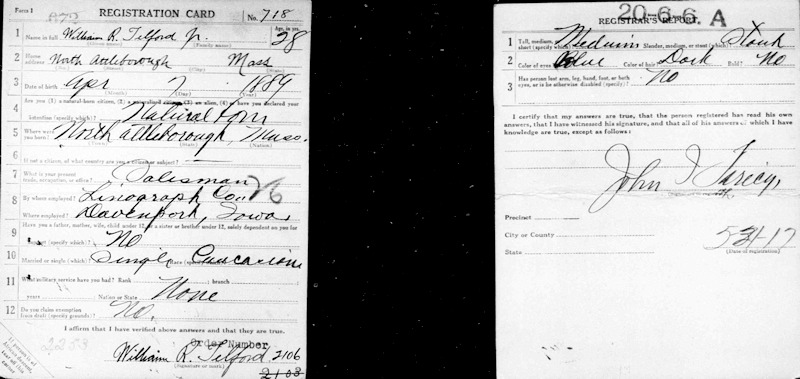 Form 1 REGISTRATION CARD No. 718
1 Name in full William R. Telford Jr. Age, in yrs. 28
(Given name) (Family name)
2 Home address North Attleborough Mass
(No.) (Street) (City) (State)
3 Date of birth Apr 7 1889
(Month) (Day) (Year)
4 Are you (1) a natural-born citizen, (2) a naturalized citizen, (3) an alien, (4) or have you declared your
intention (specify which)? Natural born
5 Where were you born? North Attleborough, Mass.
(Town) (State) (Nation)
6 If not a citizen, of what country are you a citizen or subject? —
7 What is your present trade, occupation, or office? Salesman
8 By whom employed? Linograph Co. 26
Where employed? Davenport, Iowa
9 Have you a father, mother, wife, child under 12, or a sister or brother under 12, solely dependent on you for
support (specify which)? No
10 Married or single (which)? Single Race (specify which)? Caucasian
11 What military service have you had? Rank ; branch ;
years ; Nation or State None
12 Do you claim exemption from draft (specify grounds)? No.
I affirm that I have verified above answers and that they are true.
Order Number
William R. Telford 2106
(Signature or mark) 2103
20-6-6. A
REGISTRAR'S REPORT
1 Tall, medium, or short (specify which)? Medium Slender, medium, or stout (which)? Stout
2 Color of eyes? Blue Color of hair? Dark Bald? No
3 Has person lost arm, leg, hand, foot, or both
eyes, or is he otherwise disabled (specify)? No
I certify that my answers are true, that the person registered has read his own
answers, that I have witnessed his signature, and that all of his answers of which I have
knowledge are true, except as follows:
John J
Precinct
City or County
State 5-31-17
(Date of registration)